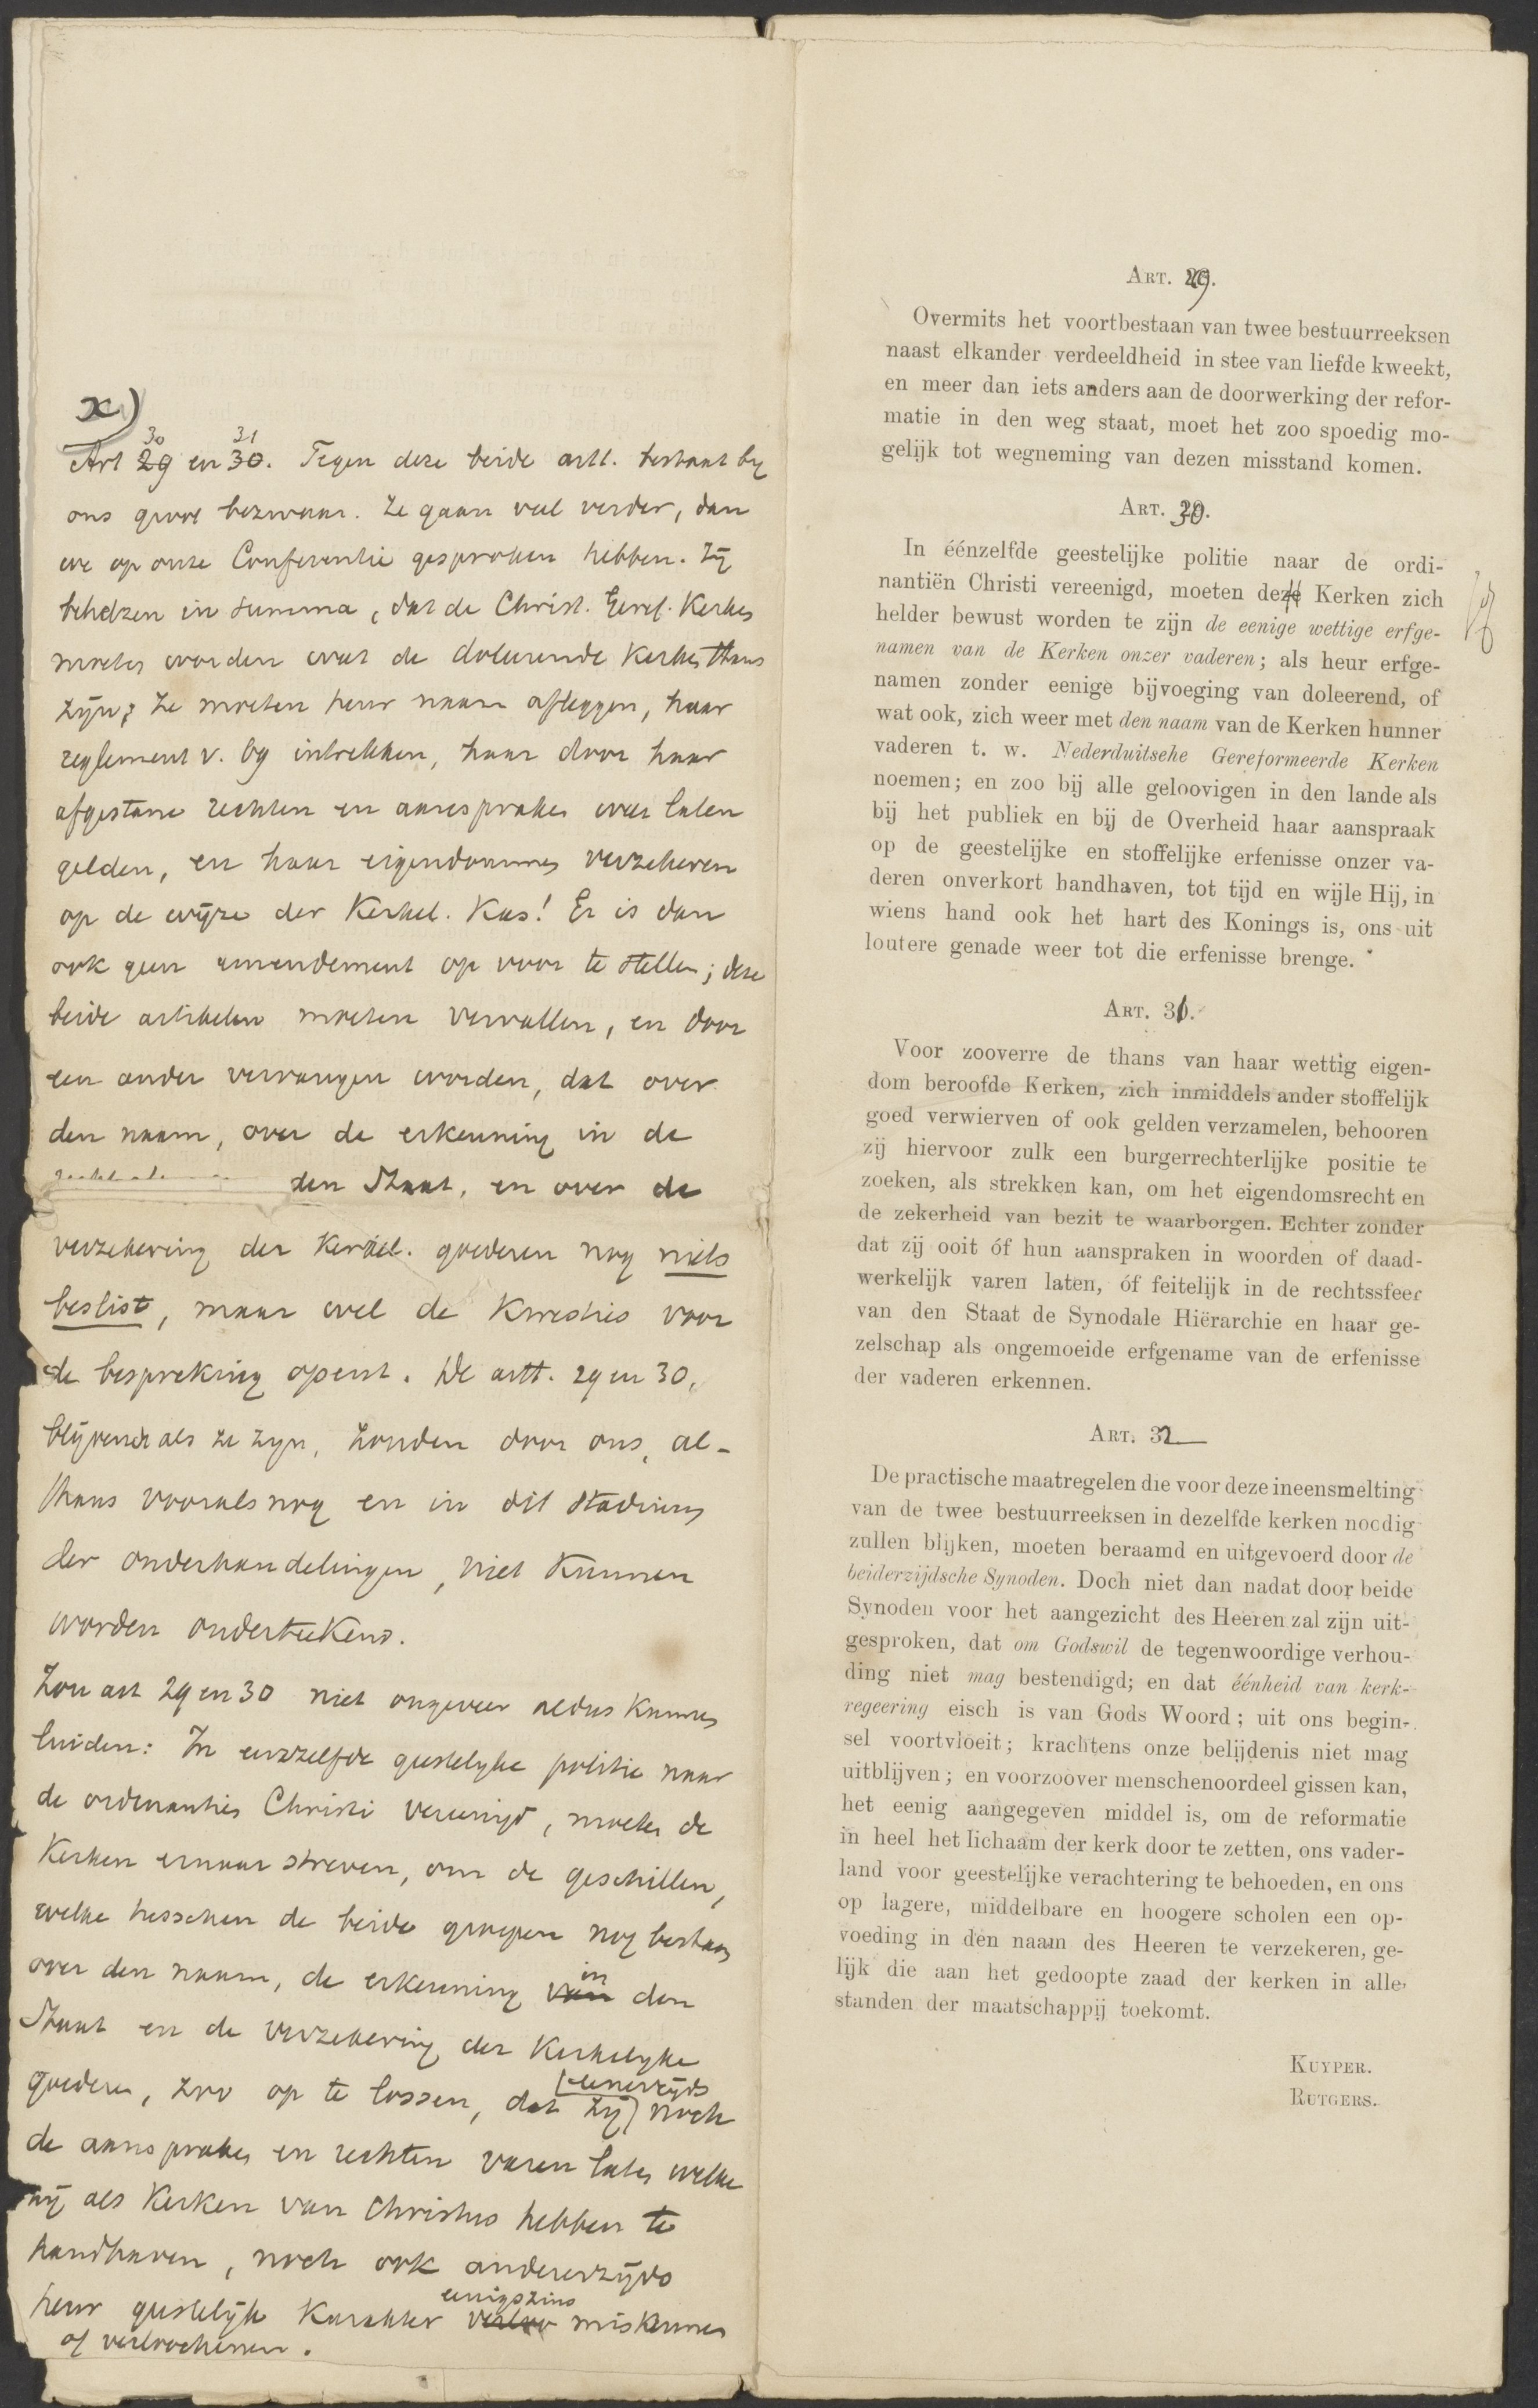 x)
30 31
Art 29 en 30. Tegen deze beide artt. bestaat by
ons groot bezwaar. Ze gaan veel verder, dan
we op onze Conferentie gesproken hebben. Zij
behelzen in summa, dat de Christ. Geref. Kerken
moeten worden wat de doleerende Kerken thans
zijn; ze moeten heur naam afleggen, haar
reglement v. 69 intrekken, haar door haar
afgestane rechten en aanspraken weer laten
gelden, en haar eigendommen verzekeren
op de wijze der Kerkel. Kas! Er is dan
ook geen amendement op voor te stellen; deze
beide artikelen moeten vervallen, en door
een ander vervangen worden, dat over
den naam, over de erkenning in de
den Staat, en over de
verzekering der Kerkel. goederen nog niets
beslist, maar wel de Kwesties voor
de bespreking opent. De artt. 29 en 30,
blijvende als ze zyn, zouden door ons, al-
thans vooralsnog en in dit stadium
der onderhandelingen, niet kunnen
worden onderteekend.
Zou art 29 en 30 niet ongeveer aldus kunnen
luiden: In eenzelfde geestelyke politie naar
de ordinanties Christi vereenigd, moeten de
Kerken ernaar streven, om de geschillen,
welke tusschen de beide groepen nog bestaan
over den naam, de erkenning van in den
Staat en de verzekering der Kerkelyke
goederen, zoo op te lossen, dat zij eenerzijds noch
de aanspraken en rechten varen laten welke
zij als Kerken van Christus hebben te
handhaven, noch ook andererzijds
heur geestelijk Karakter eenigszins miskennen
of verloochenen.
Art. 29.
Overmits het voortbestaan van twee bestuurreeksen
naast elkander verdeeldheid in stee van liefde kweekt,
en meer dan iets anders aan de doorwerking der refor-
matie in den weg staat, moet het zoo spoedig mo-
gelijk tot wegneming van dezen misstand komen.
Art. 30.
In éénzelfde geestelijke politie naar de ordi-
nantiën Christi vereenigd, moeten deze Kerken zich
helder bewust worden te zijn de eenige wettige erfge-
namen van de Kerken onzer vaderen; als heur erfge-
namen zonder eenige bijvoeging van doleerend, of
wat ook, zich weer met den naam van de Kerken hunner
vaderen t. w. Nederduitsche Gereformeerde Kerken
noemen; en zoo bij alle geloovigen in den lande als
bij het publiek en bij de Overheid haar aanspraak
op de geestelijke en stoffelijke erfenisse onzer va-
deren onverkort handhaven, tot tijd en wijle Hij, in
wiens hand ook het hart des Konings is, ons uit
loutere genade weer tot die erfenisse brenge.
Art. 31.
Voor zooverre de thans van haar wettig eigen-
dom beroofde Kerken, zich inmiddels ander stoffelijk
goed verwierven of ook gelden verzamelen, behooren
zij hiervoor zulk een burgerrechterlijke positie te
zoeken, als strekken kan, om het eigendomsrecht en
de zekerheid van bezit te waarborgen. Echter zonder
dat zij ooit óf hun aanspraken in woorden of daad-
werkelijk varen laten, óf feitelijk in de rechtssfeer
van den Staat de Synodale Hiërarchie en haar ge-
zelschap als ongemoeide erfgename van de erfenisse
der vaderen erkennen.
Art. 32
De practische maatregelen die voor deze ineensmelting
van de twee bestuurreeksen in dezelfde kerken noodig
zullen blijken, moeten beraamd en uitgevoerd door de
beiderzijdsche Synoden. Doch niet dan nadat door beide
Synoden voor het aangezicht des Heeren zal zijn uit-
gesproken, dat om Godswil de tegenwoordige verhou-
ding niet mag bestendigd; en dat éénheid van kerk-
regeering eisch is van Gods Woord; uit ons begin-
sel voortvloeit; krachtens onze belijdenis niet mag
uitblijven; en voorzoover menschenoordeel gissen kan,
het eenig aangegeven middel is, om de reformatie
in heel het lichaam der kerk door te zetten, ons vader-
land voor geestelijke verachtering te behoeden, en ons
op lagere, middelbare en hoogere scholen een op-
voeding in den naam des Heeren te verzekeren, ge-
lijk die aan het gedoopte zaad der kerken in alle
standen der maatschappij toekomt.
Kuyper.
Rutgers.